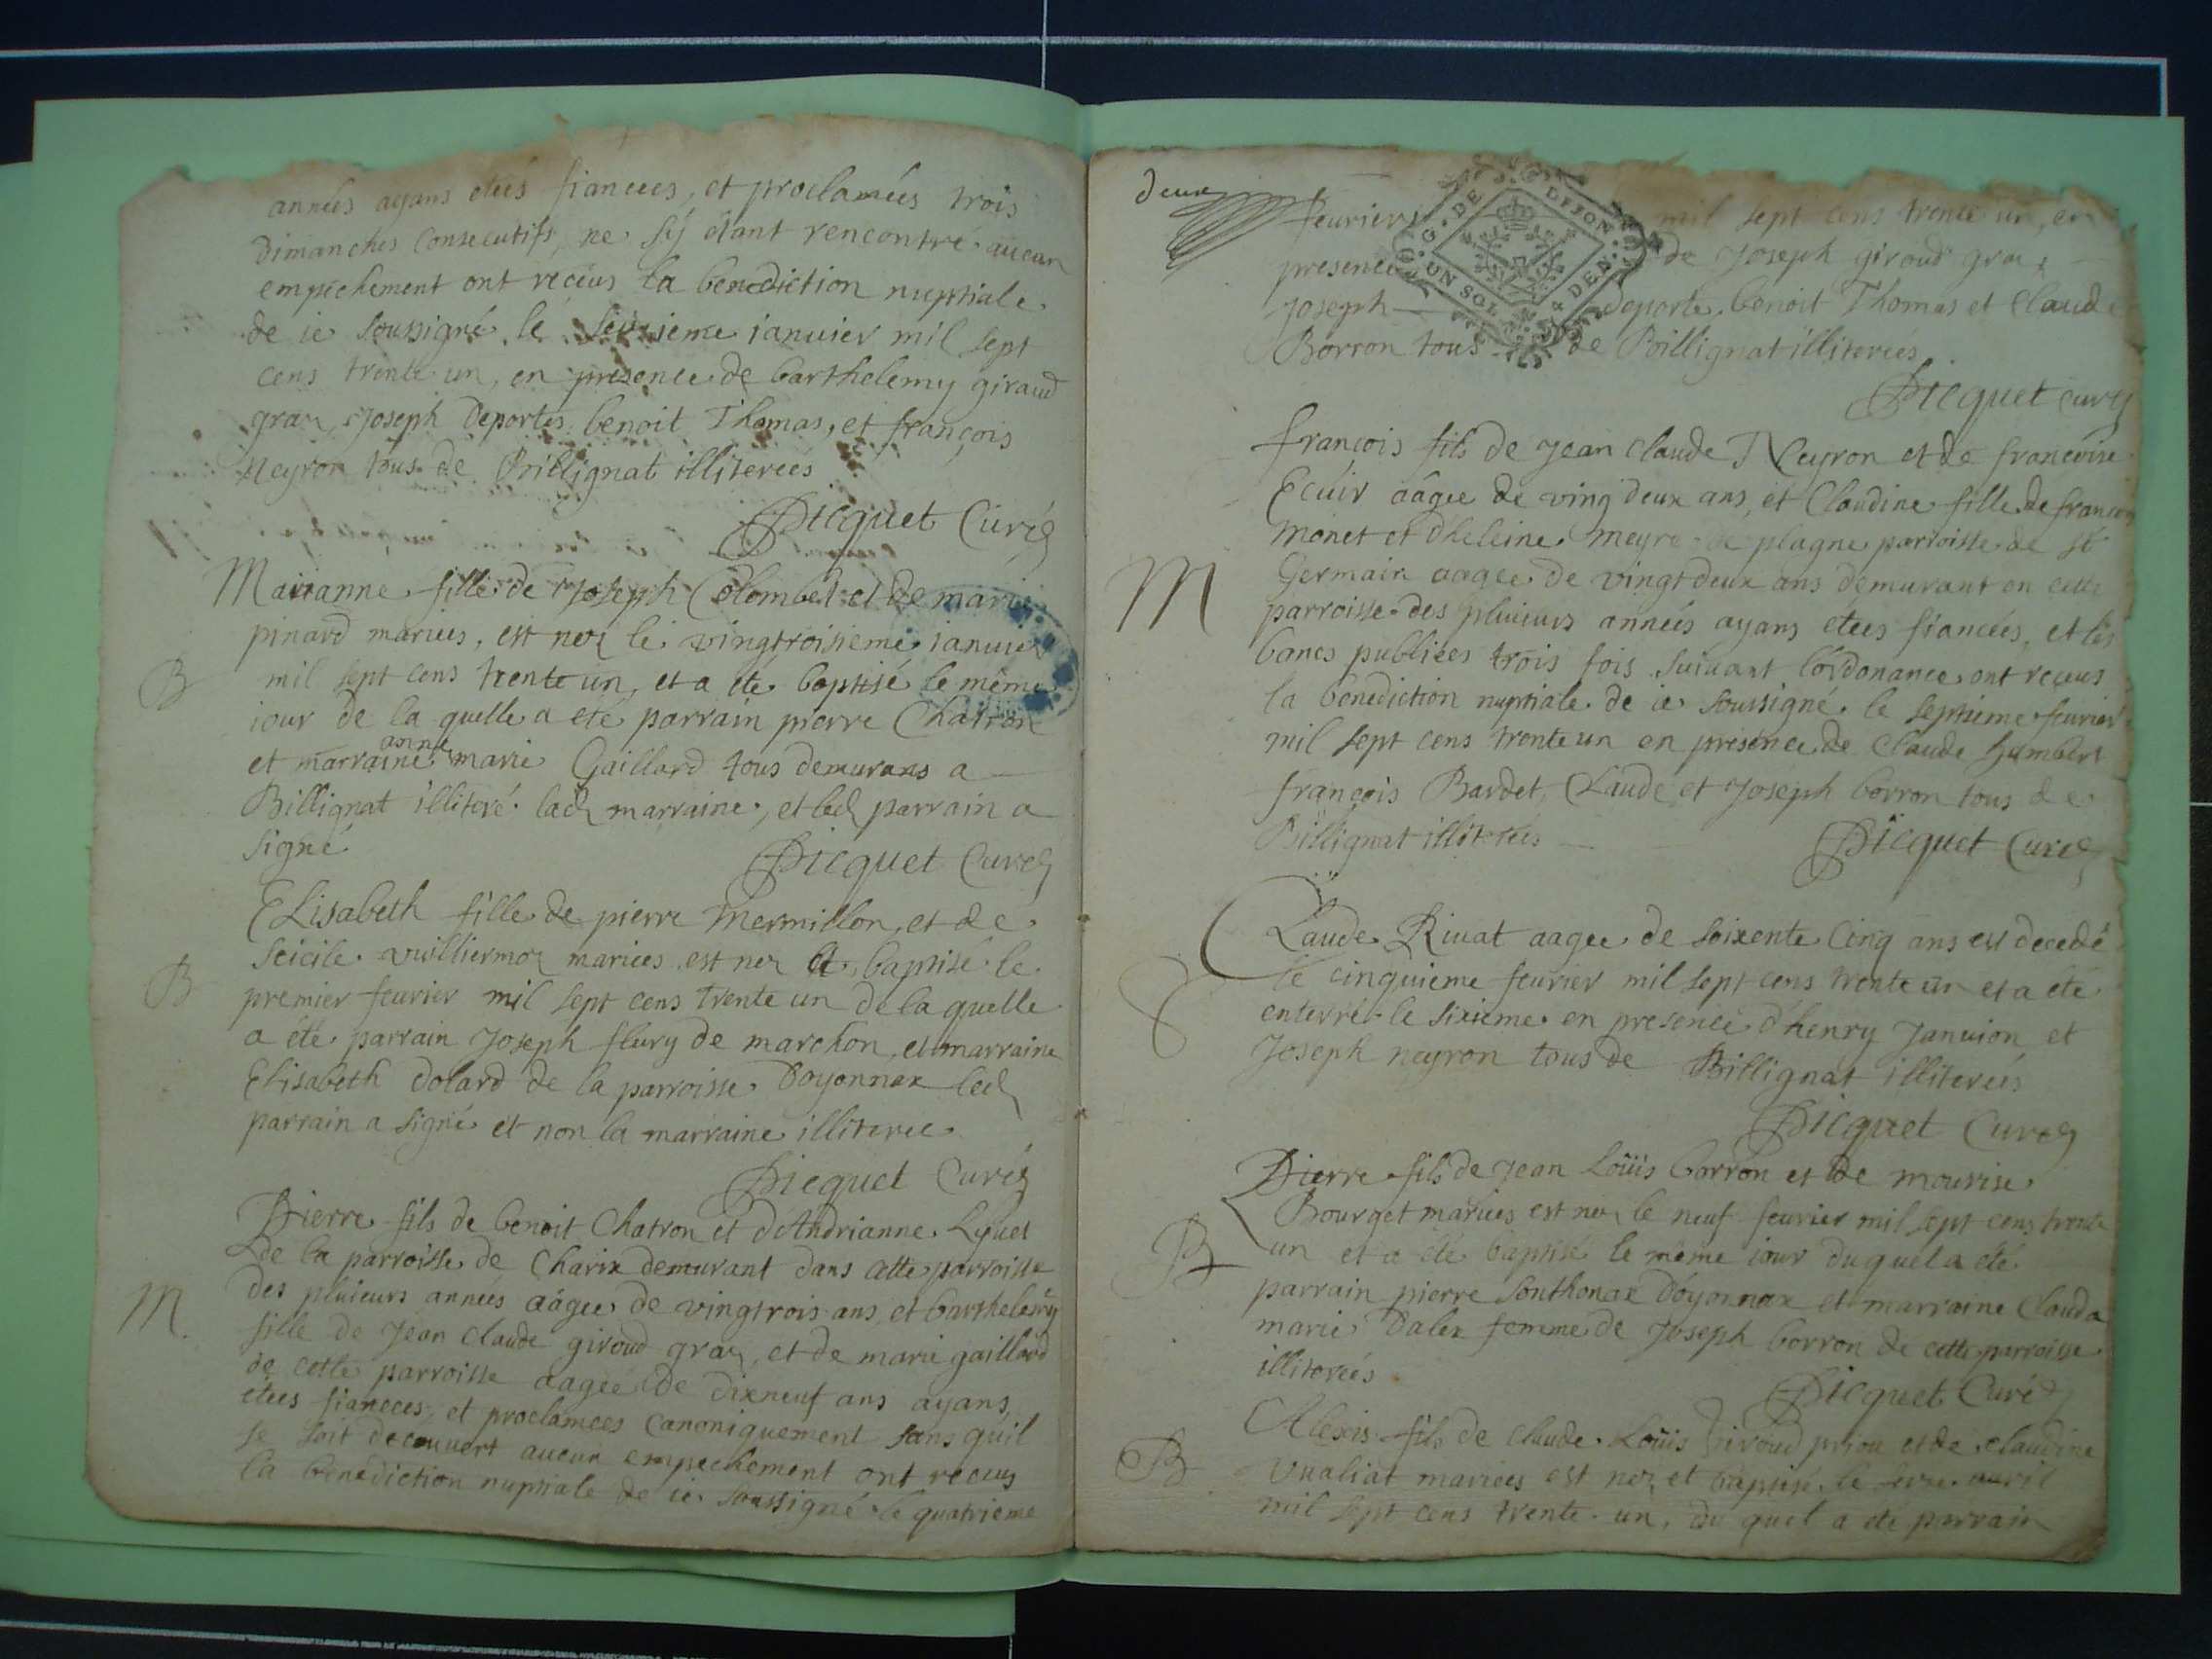 années ayans etées fiancées, et proclamées trois
Dimanches Consecutifs, ne s'ÿ étant rencontré aucun
empéchement ont recéus la benediction nuptiale
de ie soussigné le seizieme ianuier mil sept
cens trente un, en presence de barthelemy giraud
graz, Joseph Deportes benoit Thomas, et françois
Neyron tous de Billignat illiterées
Picquet Curé
Marianne fille de Joseph Colombet et de marie
pinard mariées, est nez le vingtroisieme ianuier
B
mil sept cens trente un, et a été baptisé le même
iour de la quelle a eté parrain pierre Chatron
anne
et marraine marie Gaillard tous demurans a
Billignat illiteré lad marraine, et led parrain a
signé
Picquet Curé
Elisabeth fille de pierre Mermillon, et de
Seicile vuilliermoz mariées est nez et baptisé le
B
premier feurier mil sept cens trente un de la quelle
a été parrain Joseph flury de marchon, et marraine
Elisabeth dolard de la parroisse Doyonnax led
parrain a signé et non la marraine illiteree
Picquet Curé
Pierre fils de benoit Chatron et d'Andrianne Lyuet
de la parroisse de Charix demurant dans cette parroisse
M.
des pluieurs années aâgee de vingtrois ans, et barthelemy
fille de Jean claude giroud graz, et de marie gaillard
de cette parroisse aagée de dixneuf ans ayans
etees fiancees, et proclamees Canoniquement sans quil
se soit decouuert aucun empechement ont recus
la benediction nuptiale de ie soussigné le quatrieme
deux
feurier mil sept cens trente un, en
G. DE DIJON. UN SOL 4 DEN.
presence de Joseph giroud graz
Joseph deporte, benoit Thomas et Claude
Borron tous de Billignat illiterées
Picquet curé
françois fils de Jean Claude Neyron et de françoise
Ecuir aâgee de ving deux ans, et Claudine fille de françois
Monet et d'heleine Meyre de plagne parroisse de St
M
Germain aagee de vingtdeux ans demurant en cette
parroisse des pluieurs années ayans etees fiancées, et les
bancs publiées trois fois suiuant l'ordonance ont recues
la benediction nuptiale de ie soussigné le septieme feurier
mil sept cens trente un en presence de Claude humbert
françois Bardet, Claude et Joseph borron tous de
Billignat illiterées
Picquet Curé
Claude Riuat aagee de soixente Cinq ans est decedé
le cinquieme feurier mil sept cens trente un et a eté
enterré le sixieme en presence d'henry Januion et
Joseph neyron tous de Billignat illiterées
Picquet Curé
Pierre fils de Jean Loüis borron et de mourise
Bourget mariées est nez le neuf feurier mil sept cens trente
B
un et a été baptisé le même iour du quel a été
parrain pierre Sonthonax d'oyonnax et marraine Clauda
marie Dalex femme de Joseph borron de cette parroisse
illiterées
Picquet Curé
Alexis fils de claude Loüis giroud et de claudine
B
Vualiat mariées est nez, et baptisé le auril
mil sept cens trente un, du quel a eté parrain